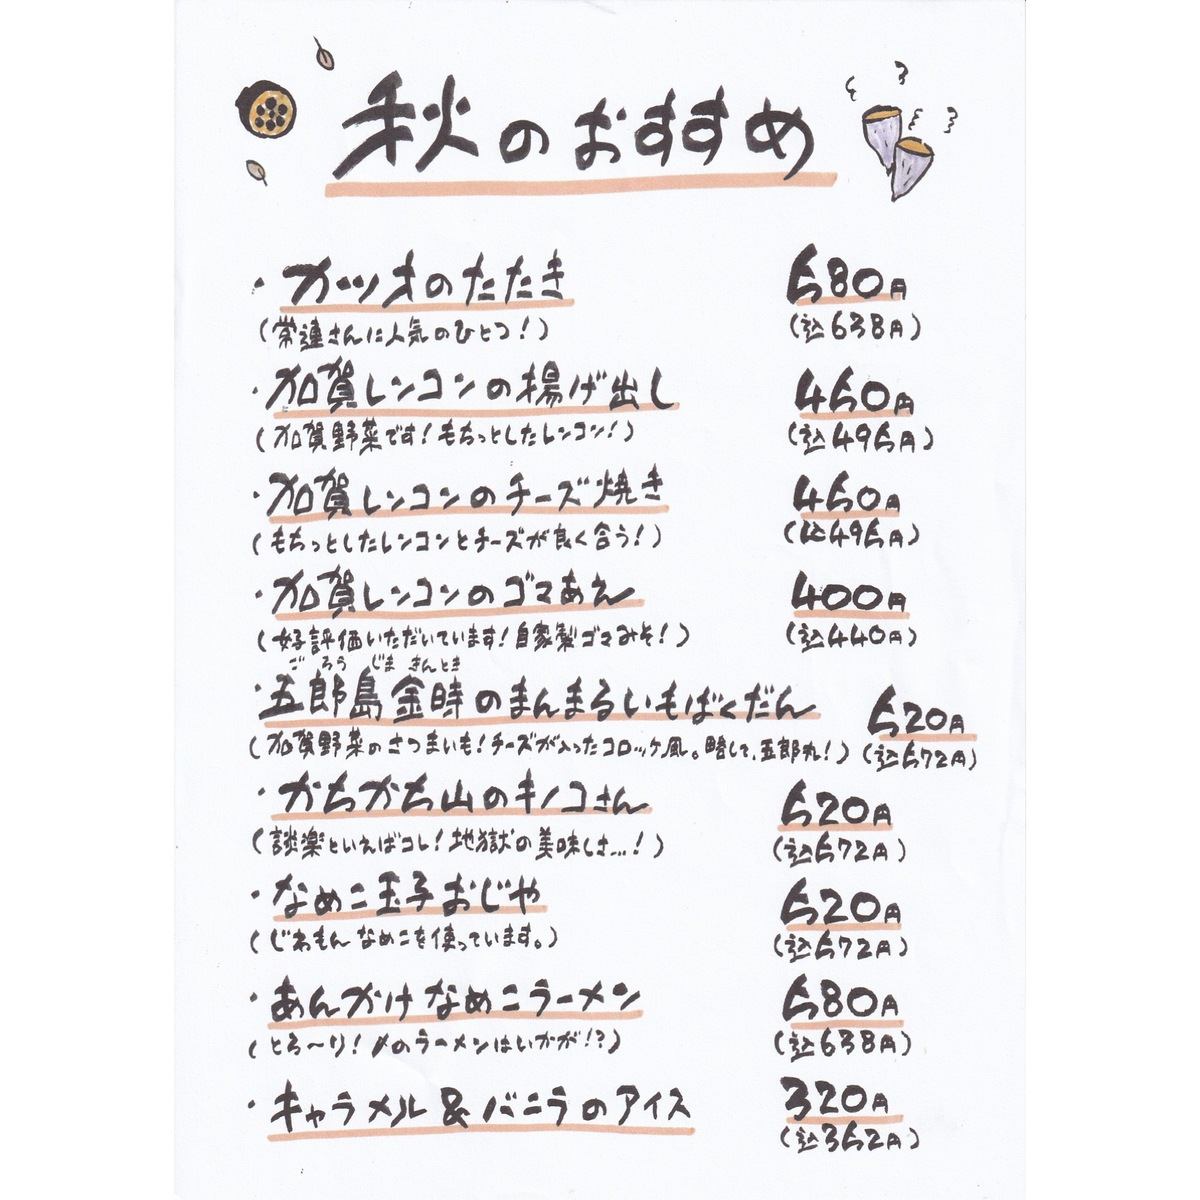 秋のおすすめ
・カツオのたたき 580円
(常連さんに人気のひとつ!) (込638円)
・加賀レンコンの揚げ出し 450円
(加賀野菜です!もちっとしたレンコン!) (込495円)
・加賀レンコンのチーズ焼き 450円
(もちっとしたレンコンとチーズが良く合う!) (込495円)
・加賀レンコンのゴマあえ 400円
(好評価いただいています!自家製ゴマみそ!) (込440円)
ご ろう じま きんとき
・五郎島金時のまんまるいもばくだん 520円
(加賀野菜のさつまいも!チーズが入ったコロッケ風。略して、五郎丸!) (込572円)
・かちかち山のキノコさん 520円
(談楽といえばコレ!地獄の美味しさ...!) (込572円)
・なめこ玉子おじや 520円
(じわもんなめこを使っています。) (込572円)
・あんかけなめこラーメン 580円
(とろ〜り!〆のラーメンはいかが!?) (込638円)
・キャラメル&バニラのアイス 320円
(込352円)